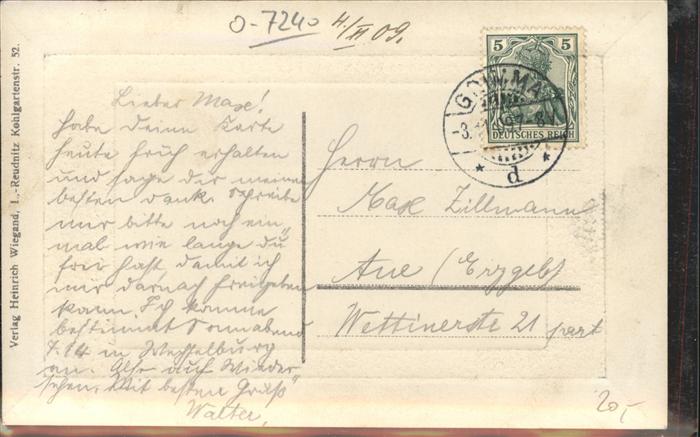 0-7240
4/II 09.
Verlag Heinrich Wiegand, L.-Reudnitz Kohlgartenstr. 52.
5 5
DEUTSCHES REICH
-3.
* d *
Lieber Max!
habe deine Karte
heute früh erhalten
und sage dir meinen
besten dank. Schreibe
mir bitte noch ein"
mal wie lange du
frei hast, damit ich
mir darnach freigeben
kann. Ich komme
bestimmt Sonnabend
7.14 in Wechselburg
an. Also auf Wieder"
sehen. Mit besten Gruß
Walter.
Herrn
Max Zillmann
Aue (Erzgeb)
Wettinerstr 21 part
20,-